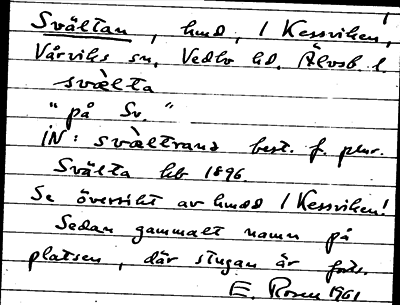 Svältan, hmd, / Kessviken,
Vårviks sn, Vedbo hd, Älvsb. l.
svæ̀lta
"på Sv."
IN: svæ̀ltrana best. f. plur.
Svälta hb 1896
Se översikt av hmdd / Kessviken!
Sedan gammalt namn på
platsen, där stugan är
E. Rosen 1961